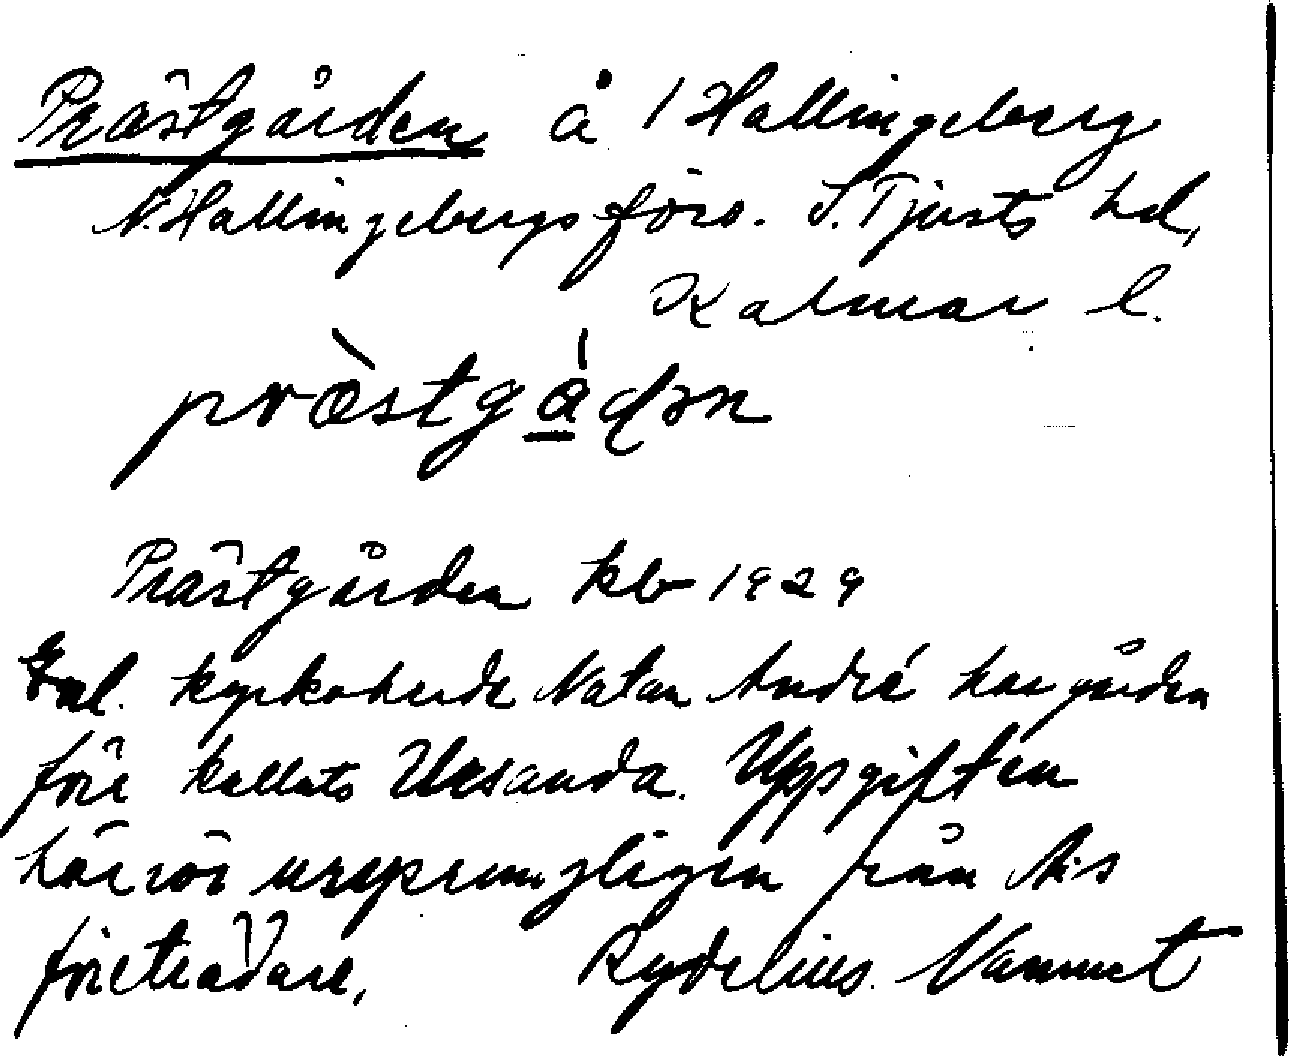 Prästgården å 1 Hallingeberg
N. Hallingebergs förs. S. Tjusts hd,
Kalmar l.
pr̀æstgådən
Prästgården kb 1929
Enl. kyrkoherde Natan André har gården
förr kallats Ursanda. Uppgiften
härrör ursprungligen från A:s
företrädare, Rydelius. Namnet